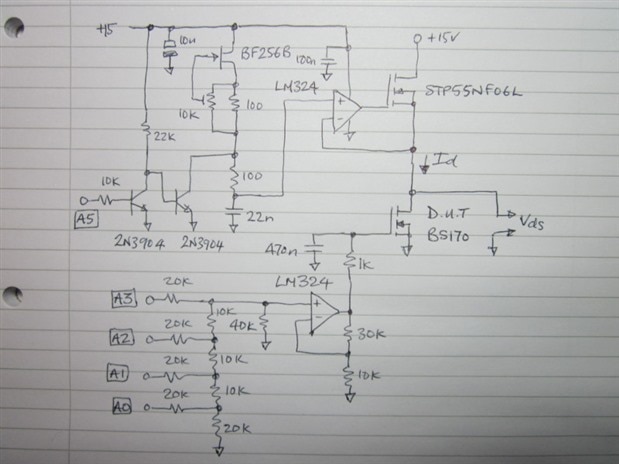 +15
10u
BF256B
100n
+15V
LM324
10K
100
+
-
STP55NF06L
22K
100
Id
10K
A5
22n
D.U.T
Vds
2N3904
2N3904
470n
BS170
1K
LM324
20K
A3
10K
40K
+
-
20K
30K
A2
20K
10K
A1
10K
10K
20K
A0
20K